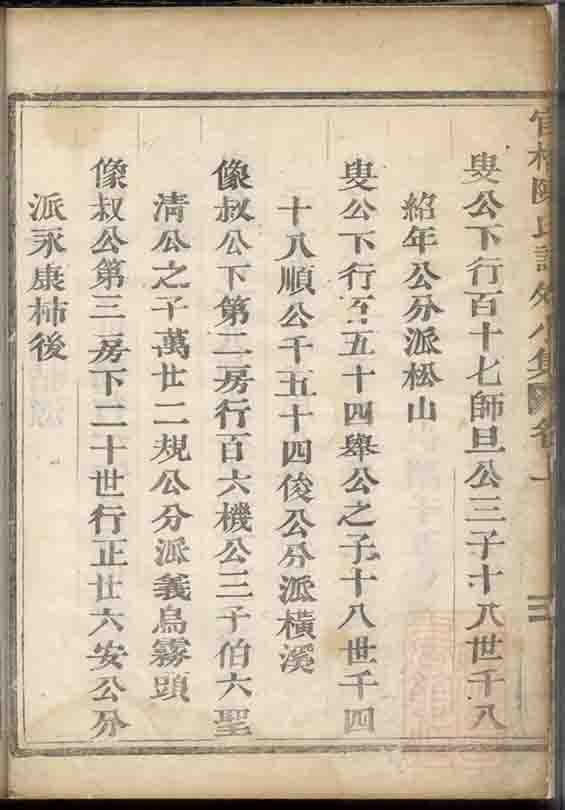 陳氏譜外小集 卷一
叟公下行百十七師旦公三子十八世千八
紹年公分派松山
叟公下行百五十四舉公之子十八世千四
十八順公千五十四俊公分派橫溪
像叔公下第二房行百六機公三子伯六聖
清公之子萬廿二規公分派義烏霧頭
像叔公第三房下二十世行正廿六安公分
派永康柿後